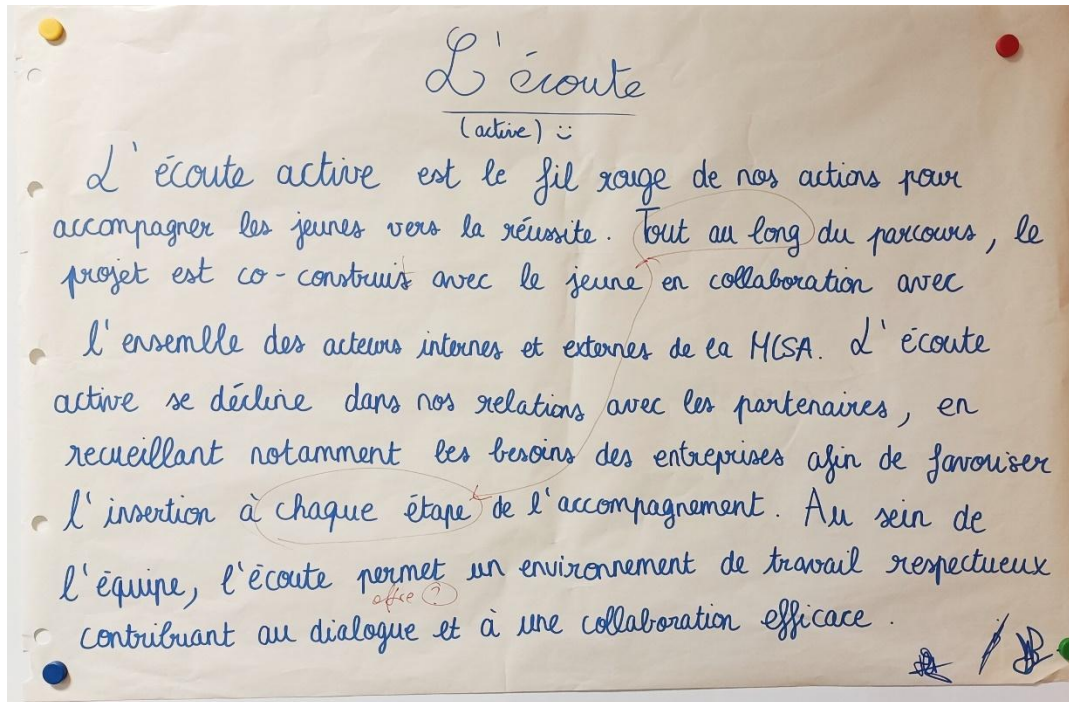 L'écoute
(active) :)
L'écoute active est le fil rouge de nos actions pour
accompagner les jeunes vers la réussite. Tout au long du parcours, le
projet est co-construit avec le jeune en collaboration avec
l'ensemble des acteurs internes et externes de la MCSA. L'écoute
active se décline dans nos relations avec les partenaires, en
recueillant notamment les besoins des entreprises afin de favoriser
l'insertion à chaque étape de l'accompagnement. Au sein de
l'équipe, l'écoute permet un environnement de travail respectueux
offre ?
contribuant au dialogue et à une collaboration efficace.